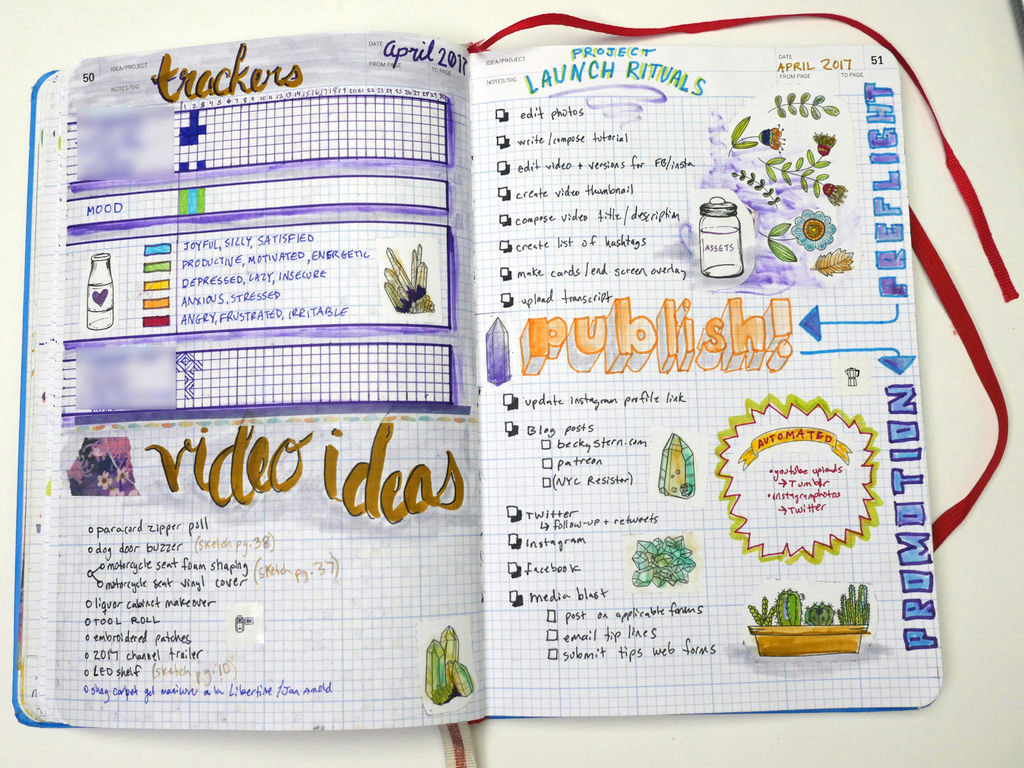 50
IDEA/PROJECT
NOTES/SIG
trackers
DATE April 2017
FROM PAGE TO PAGE
1 2 3 4 5 6 7 8 9 10 11 12 13 14 15 16 17 18 19 20 21 22 23 24 25 26 27 28 29 30
MOOD
JOYFUL, SILLY, SATISFIED
PRODUCTIVE, MOTIVATED, ENERGETIC
DEPRESSED, LAZY, INSECURE
ANXIOUS, STRESSED
ANGRY, FRUSTRATED, IRRITABLE
video ideas
paracord zipper pull
dog door buzzer (sketch pg. 38)
motorcycle seat foam shaping
motorcycle seat vinyl cover (sketch pg. 37)
liquor cabinet makeover
TOOL ROLL
embroidered patches
2017 channel trailer
LED shelf (sketch pg. 10)
shag carpet gel manicure a la Libertine / Jan Arnold
IDEA/PROJECT
NOTES/SIG
PROJECT
LAUNCH RITUALS
DATE
APRIL 2017
FROM PAGE TO PAGE
51
edit photos
write/compose tutorial
edit video + versions for FB/insta
create video thumbnail
compose video title/description
create list of hashtags
make cards/end screen overlay
upload transcript
ASSETS
PREFLIGHT
publish!
update instagram profile link
Blog posts
beckystern.com
patreon
(NYC Resistor)
Twitter
↳ follow-up + retweets
Instagram
facebook
media blast
post on applicable forums
email tip lines
submit tips web forms
AUTOMATED
• youtube uploads
→ Tumblr
• instagram photos
→ Twitter
PROMOTION